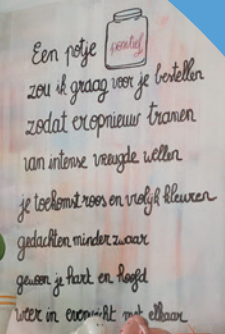 Een potje positief
zou ik graag voor je bestellen
zodat eropnieuw tranen
van intense vreugde wellen
je toekomst roos en vrolijk kleuren
gedachten minder zwaar
gewoon je hart en hoofd
weer in evenwicht met elkaar